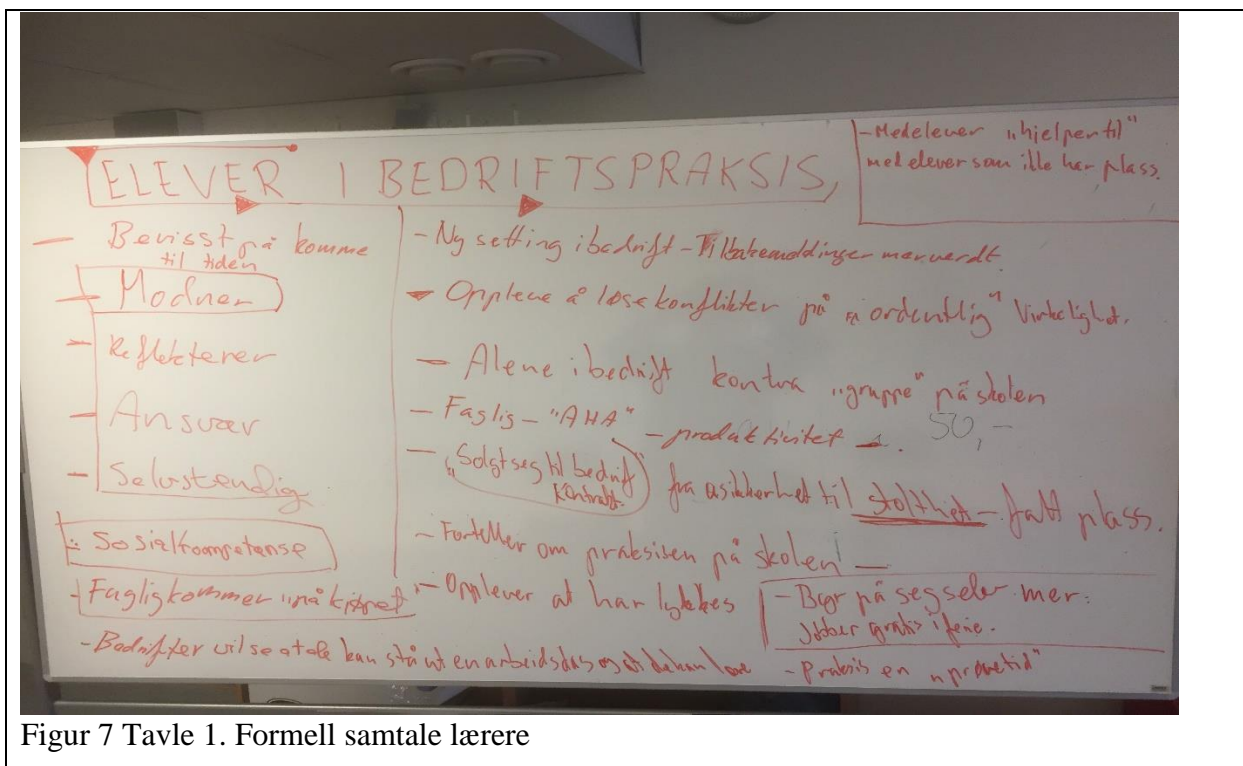 ELEVER I BEDRIFTSPRAKSIS,
- Medelever "hjelper til"
med elever som ikke har plass.
- Bevisst på komme
til tiden
- Modner
- Reflekterer
- Ansvar
- Selvstendig
- Sosialkompetanse
- Faglig kommer "på kjøpet"
- Ny setting i bedrift - Tilbakemeldinger mer verdt.
- Oppleve å løse konflikter på "ordentlig" Virkelighet.
- Alene i bedrift kontra "gruppe" på skolen
- Faglig - "AHA" - produktivitet 50,-
- "Solgt seg til bedrift
Kontrakt
fra usikkerhet til stolthet - fått plass.
- Forteller om praksisen på skolen -
- Opplever at har lykkes
- Byr på seg selv mer:
Jobber gratis i ferie.
- Bedrifter vil se at de kan stå ut en arbeidsdag og at de kan
- Praksis en "prøvetid"
Figur 7 Tavle 1. Formell samtale lærere